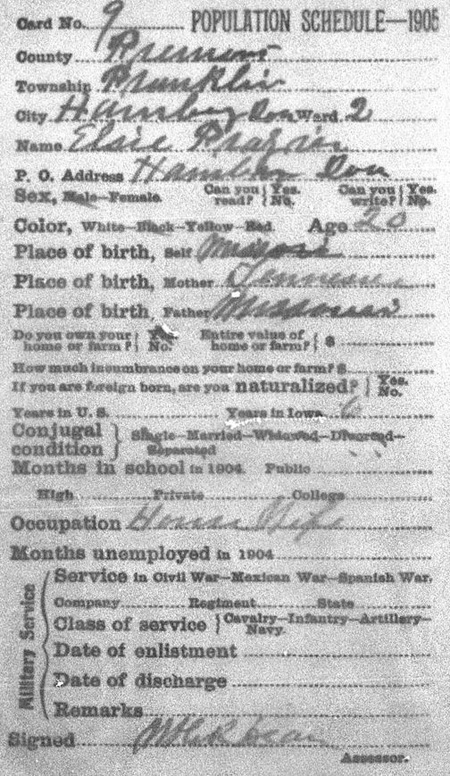 Card No. 9 POPULATION SCHEDULE—1905
County Fremont
Township Franklin
City Hamburg Iowa Ward 2
Name Elsie
P. O. Address Hamburg Iowa
Sex, Male—Female. Can you read? Yes. No. Can you write? Yes. No.
Color, White—Black—Yellow—Red. Age 20
Place of birth, Self Missouri
Place of birth, Mother Tennessee
Place of birth, Father Missouri
Do you own your home or farm? Yes. No. Entire value of home or farm? $
How much incumbrance on your home or farm? $
If you are foreign born, are you naturalized? Yes. No.
Years in U. S. Years in Iowa 6
Conjugal condition Single—Married—Widowed—Divorced—Separated
Months in school in 1904. Public
High Private College
Occupation House Wife
Months unemployed in 1904
Military Service
Service in Civil War—Mexican War—Spanish War.
Company Regiment State
Class of service Cavalry—Infantry—Artillery—Navy.
Date of enlistment
Date of discharge
Remarks
Signed
Assessor.